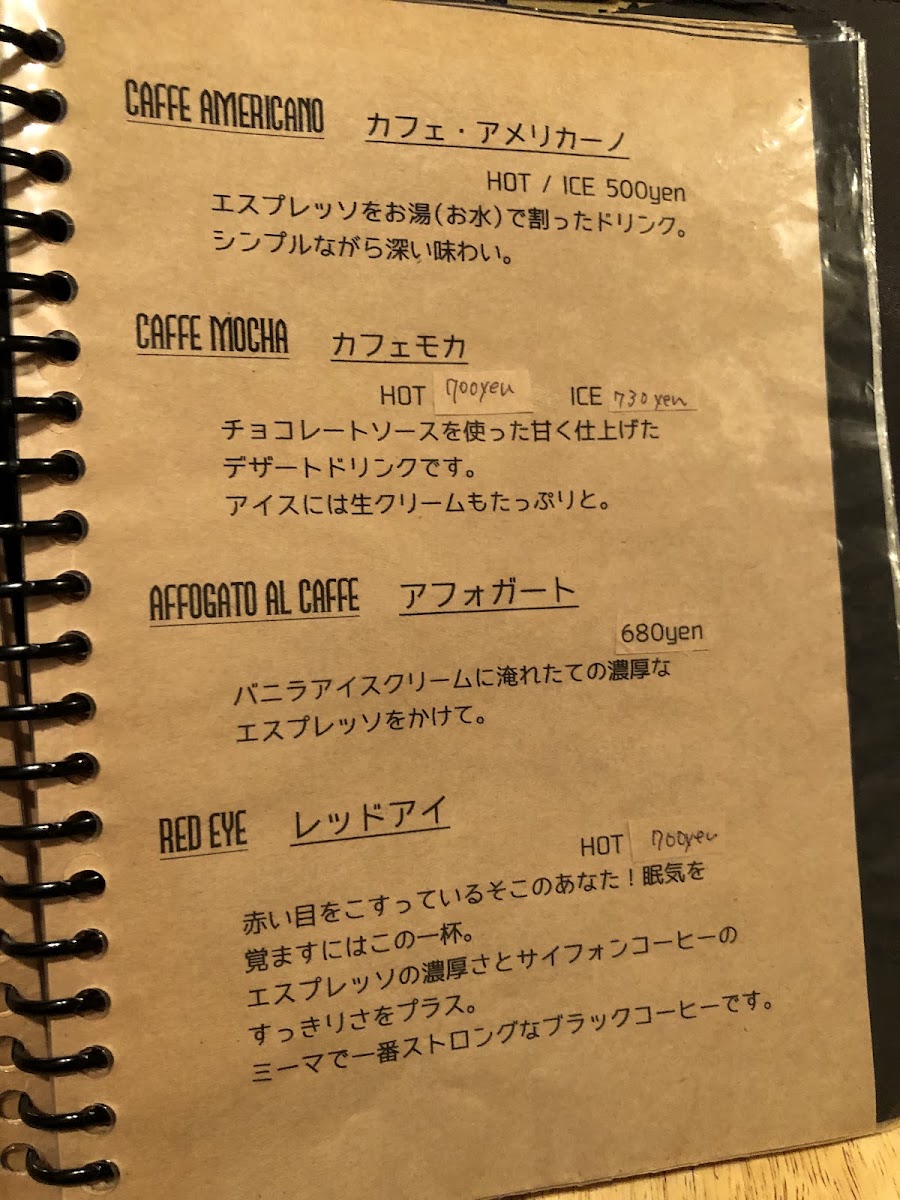 CAFFE AMERICANO カフェ・アメリカーノ
HOT / ICE 500yen
エスプレッソをお湯(お水)で割ったドリンク。
シンプルながら深い味わい。
CAFFE MOCHA カフェモカ
HOT 700yen ICE 730yen
チョコレートソースを使った甘く仕上げた
デザートドリンクです。
アイスには生クリームもたっぷりと。
AFFOGATO AL CAFFE アフォガート
680yen
バニラアイスクリームに淹れたての濃厚な
エスプレッソをかけて。
RED EYE レッドアイ
HOT 700yen
赤い目をこすっているそこのあなた！眠気を
覚ますにはこの一杯。
エスプレッソの濃厚さとサイフォンコーヒーの
すっきりさをプラス。
ミーマで一番ストロングなブラックコーヒーです。